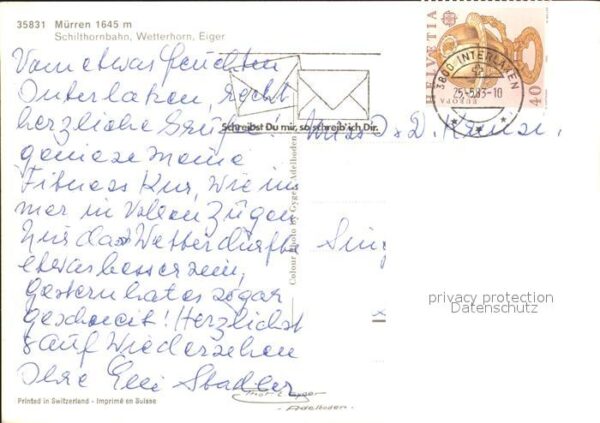 35831 Mürren 1645 m
Schilthornbahn, Wetterhorn, Eiger
HELVETIA
EUROPA
40
3800 INTERLAKEN
25.-5.83-10
Schreibst Du mir, so schreib ich Dir.
Vom etwas feuchten
Interlaken, recht
herzliche Grüße!
geniese meine
Fitness Kur, wie im
mer in vollen Zügen
Nur das Wetter dürfte
etwas besser sein,
gestern hat es sogar
geschneit! Herzlichst
auf Wiedersehen
Ihre Elli Stadler
D. Krause,
Colour Photo by Gyger Adelboden
privacy protection
Datenschutz
Printed in Switzerland - Imprimé en Suisse
Gyger
- Adelboden -